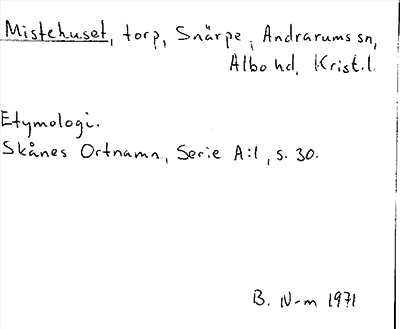 Mistehuset, torp, Snärpe, Andrarums sn,
Albo hd, Krist.l.
Etymologi.
Skånes Ortnamn, Serie A:1, s. 30.
B. N-m 1971